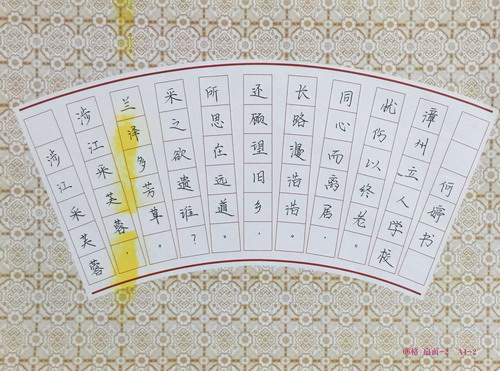 涉江采芙蓉
涉江采芙蓉，
兰泽多芳草。
采之欲遗谁？
所思在远道。
还顾望旧乡，
长路漫浩浩。
同心而离居，
忧伤以终老。
漳州立人学校
何婷书
扇面-2 A4-2